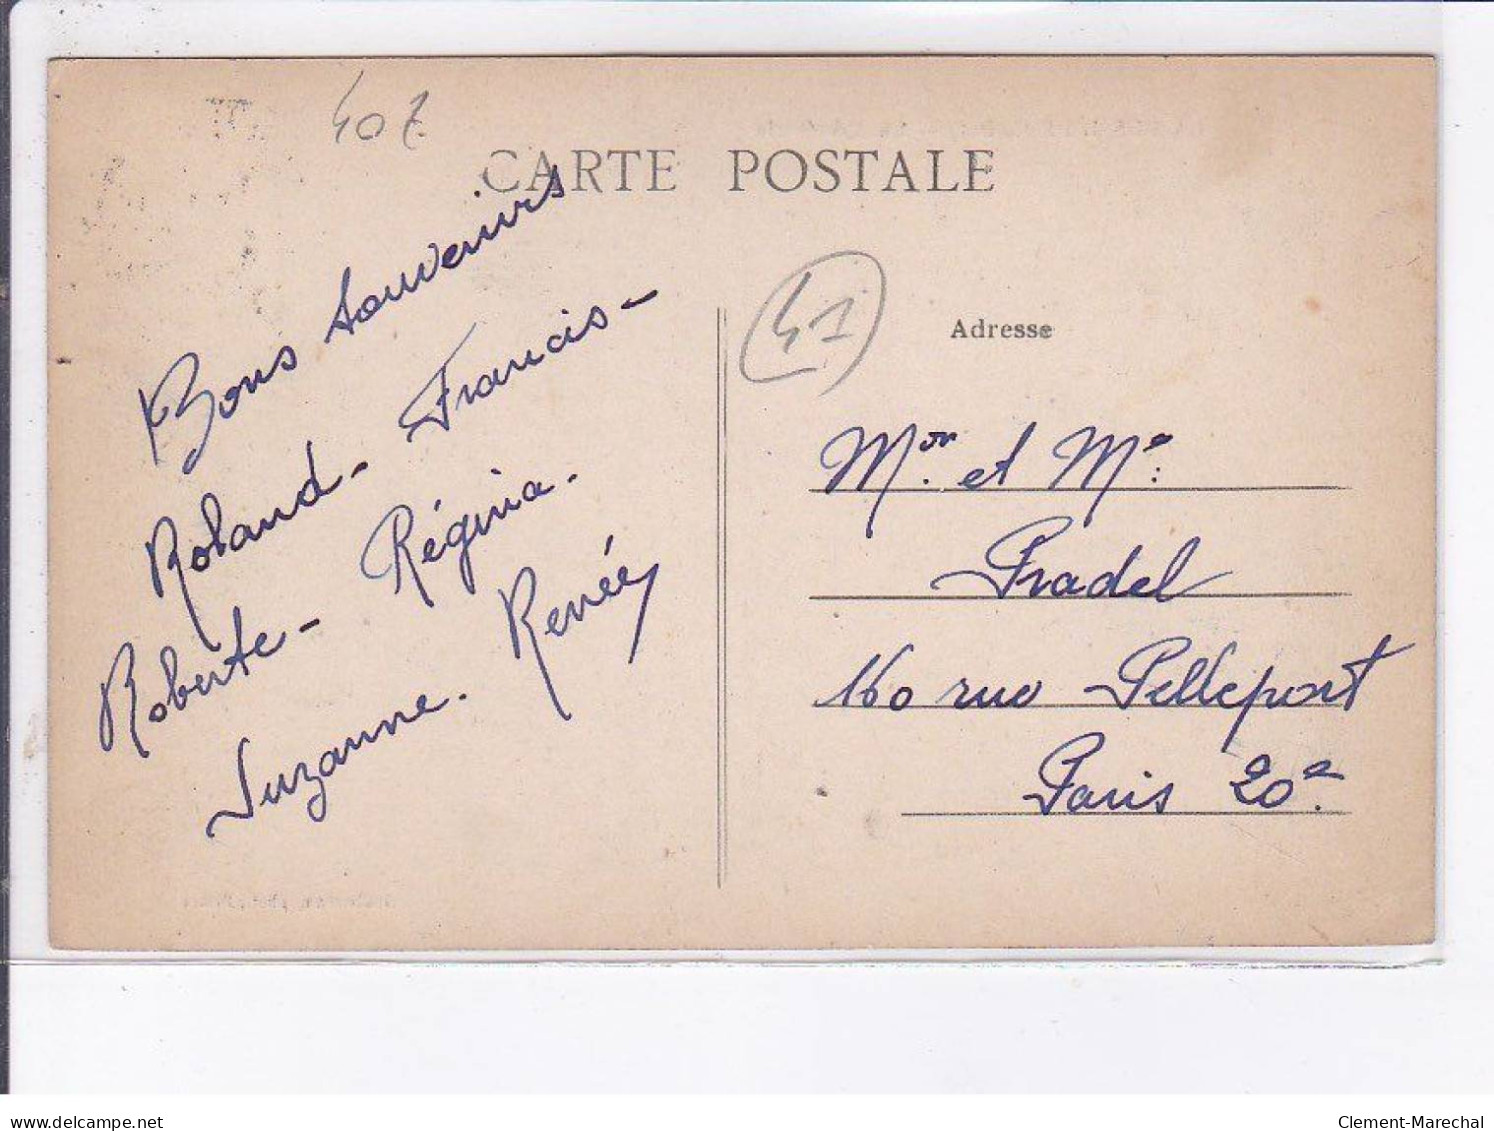 407
CARTE POSTALE
Bons souvenirs
Roland - Francis -
Roberte - Régina.
Suzanne. Renée
41
Adresse
Mon. et Me.
Pradel
160 rue Pelleport
Paris 20e.
www.delcampe.net
Clement-Marechal